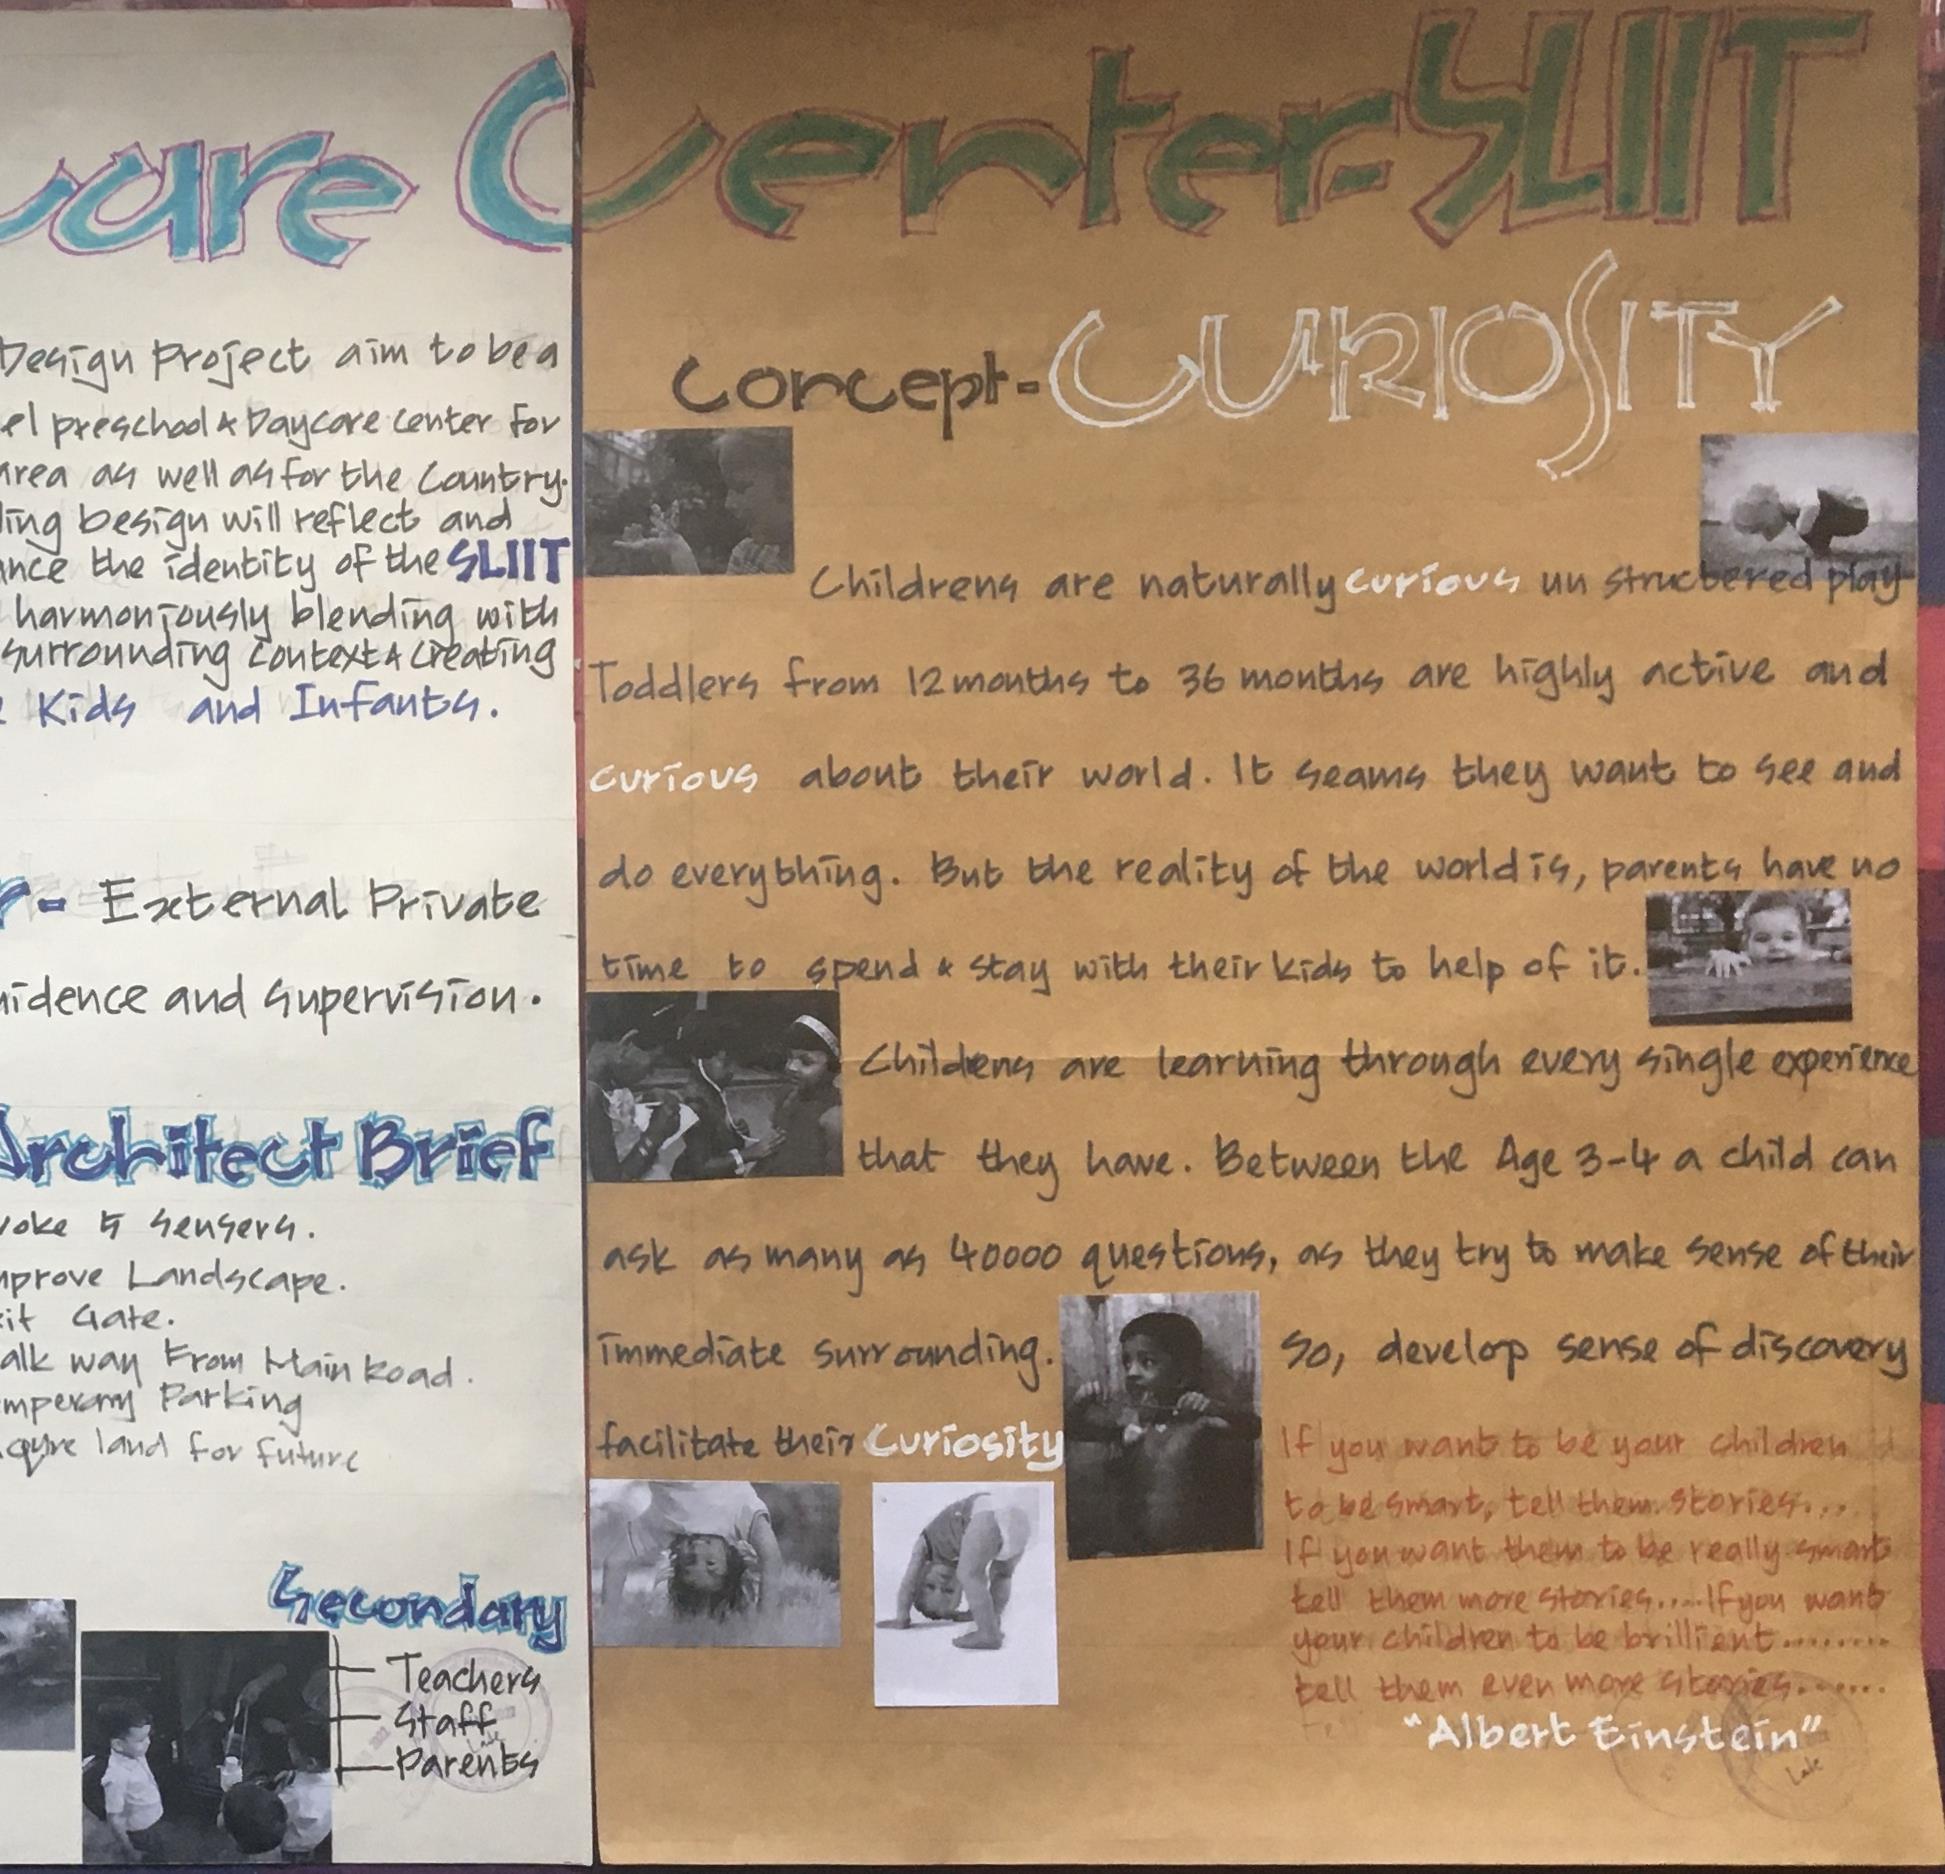 Care Center-SLIIT
Design Project aim to be a
el preschool & Daycare center for
area as well as for the Country.
ding Design will reflect and
ance the identity of the SLIIT
harmoniously blending with
surrounding context & creating
Kids and Infants.
- External Private
uidence and supervision.
Architect Brief
voke 5 sensers.
mprove Landscape.
xit Gate.
alk way From Main Road.
emperary Parking
cqyre land for future
Secondary
Teachers
Staff
Parents
Concept- CURIOSITY
Childrens are naturally curious un structered play
Toddlers from 12 months to 36 months are highly active and
curious about their world. It seams they want to see and
do everything. But the reality of the world is, parents have no
time to spend & stay with their kids to help of it.
Childrens are learning through every single experience
that they have. Between the Age 3-4 a child can
ask as many as 40000 questions, as they try to make sense of their
immediate surrounding. So, develop sense of discovery
facilitate their Curiosity
If you want to be your children
to be smart, tell them stories...
If you want them to be really smart
tell them more stories.....If you want
your children to be brillient.........
tell them even more stories.......
"Albert Einstein"
Late
Late